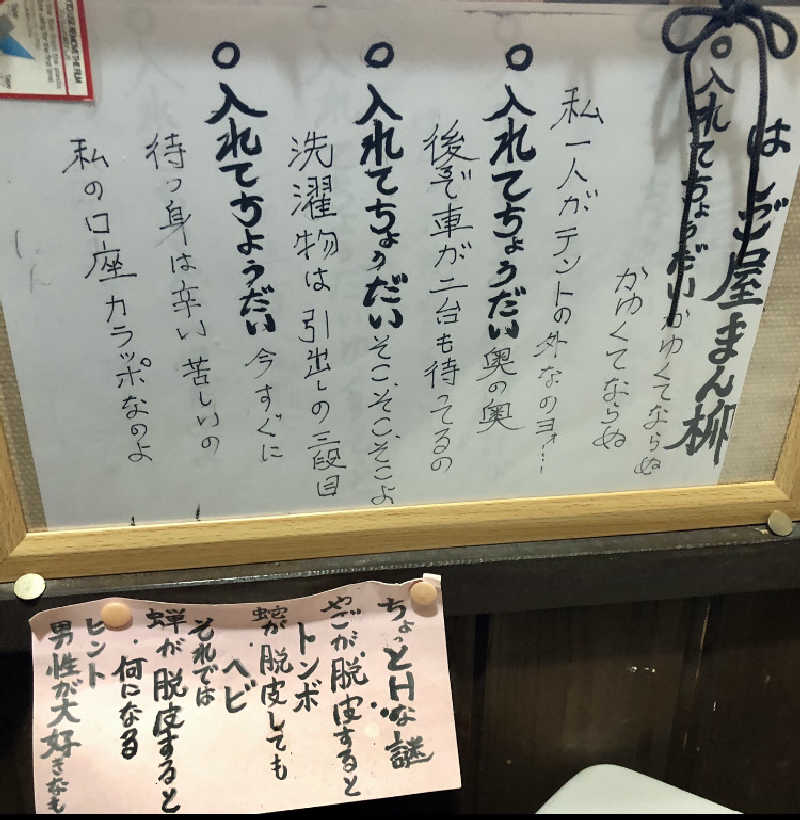 はしご屋まん柳
○入れてちょうだい かゆくてならぬ
かゆくてならぬ
私一人がテントの外なのヨォ…
○入れてちょうだい 奥の奥
後ろで車が二台も待ってるの
○入れてちょうだい そこ、そこ、そこよ
洗濯物は 引出しの三段目
○入れてちようだい 今すぐに
待つ身は辛い 苦しいの
私の口座 カラッポなのよ
ちょっとHな謎
やごが脱皮すると
トンボ
蛇が脱皮しても
ヘビ
それでは
蝉が脱皮すると
何になる
ヒント
男性が大好きなも